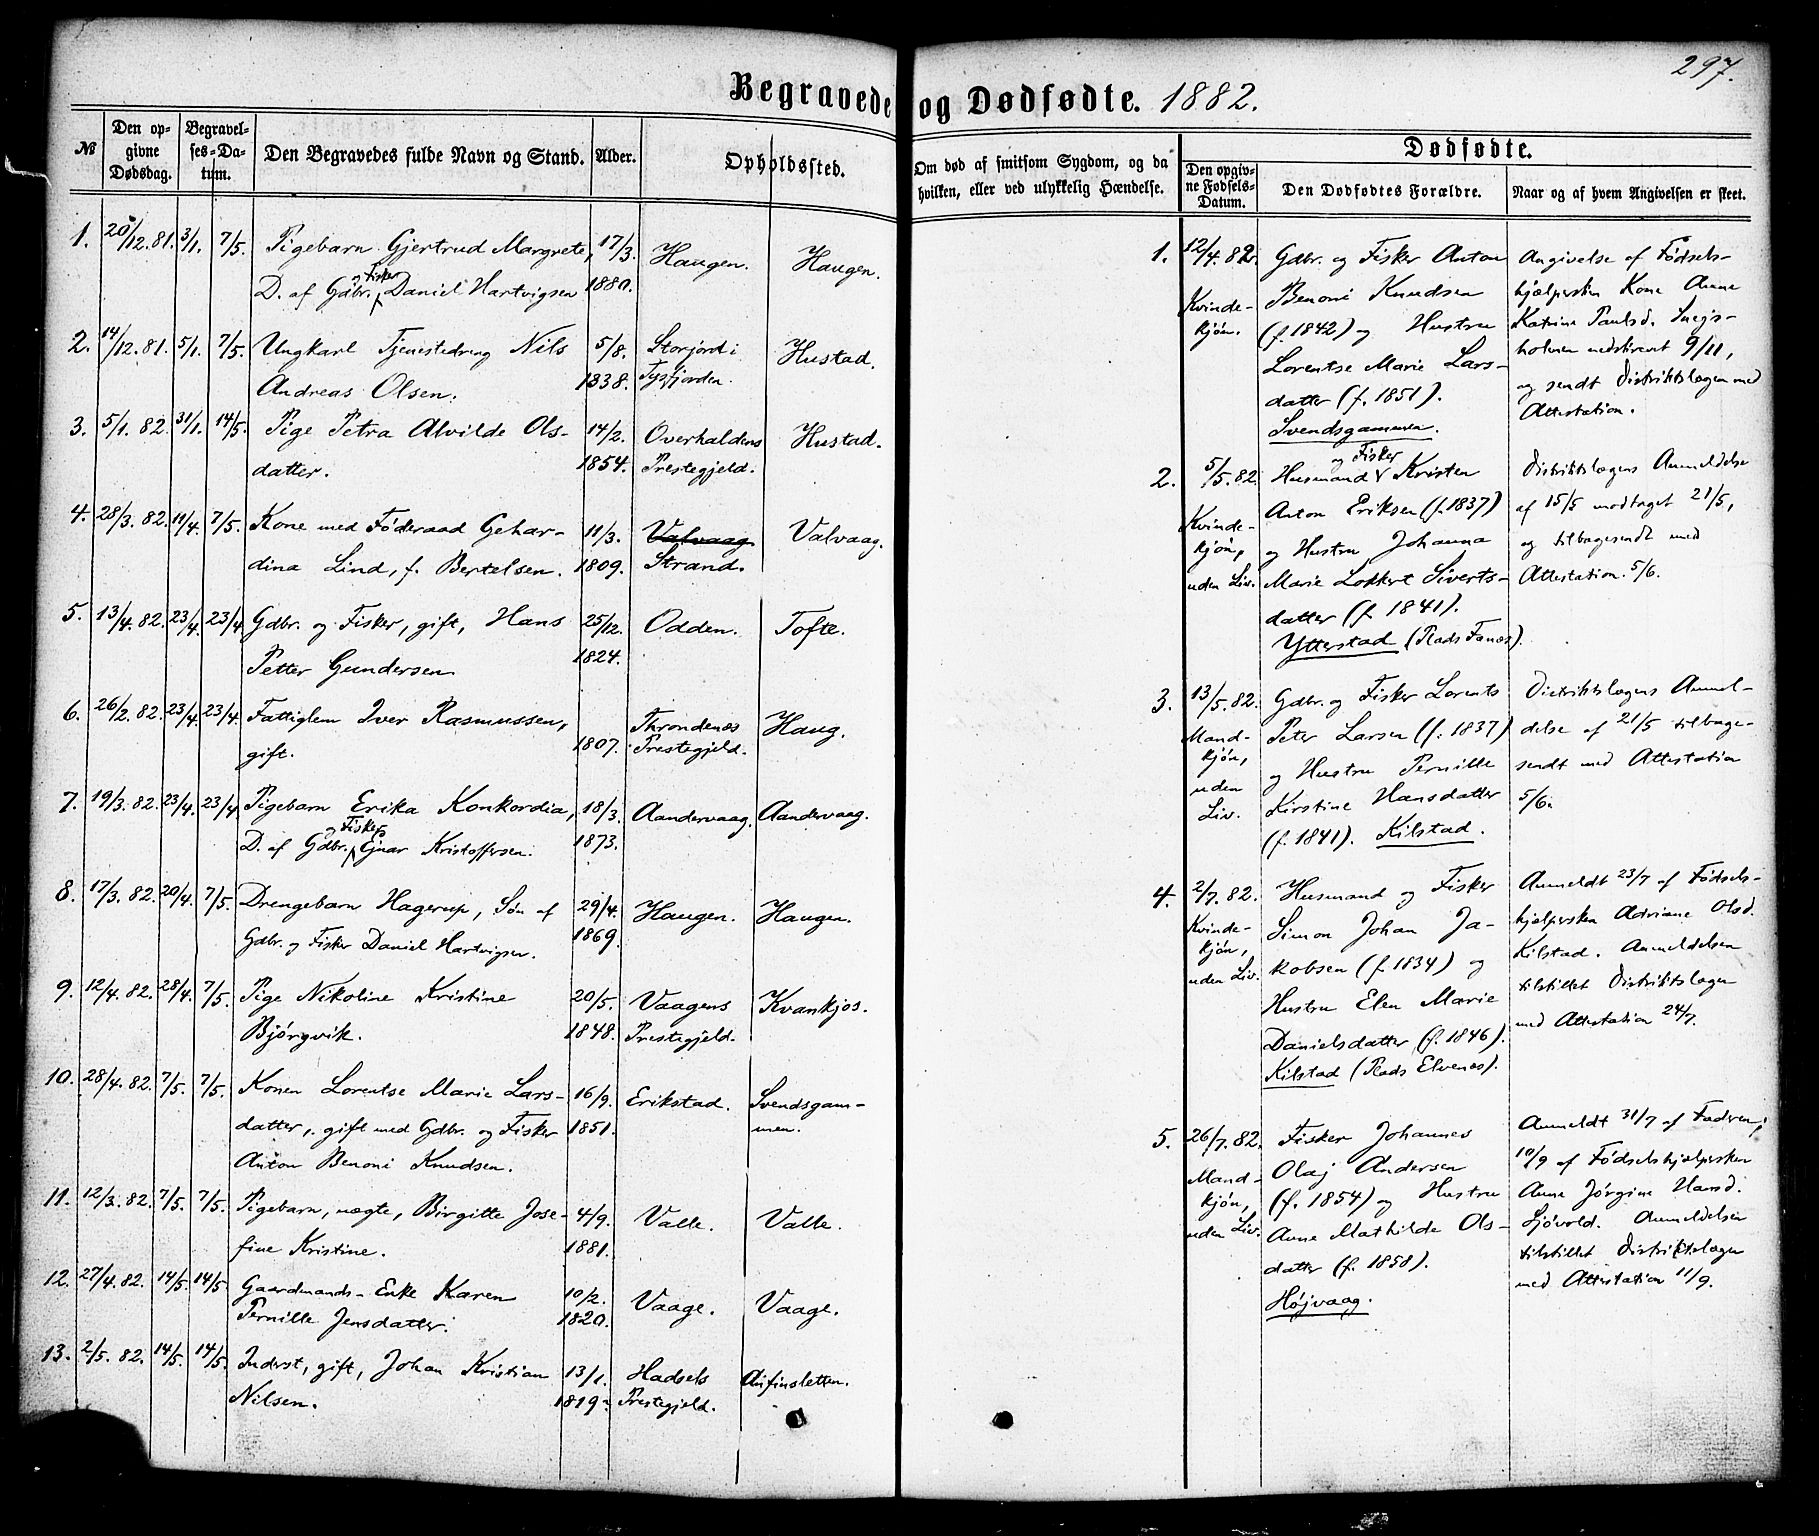 297.
Begravede og Dødfødte. 1882.
№
Den op-
givne
Dødsdag.
Begravel-
ses-Da-
tum.
Den Begravedes fulde Navn og Stand.
Alder.
Opholdssted.
Om død af smitsom Sygdom, og da
hvilken, eller ved ulykkelig Hændelse.
Dødfødte.
Den opgiv-
ne Fødsels-
Datum.
Den Dødfødtes Forældre.
Naar og af hvem Angivelsen er skeet.
1. 20/12.81. 3/1. 7/5. Pigebarn Gjertrud Margrete, 17/3. Haugen. Haugen.
og Fisker
D. af Gdbr. Daniel Hartvigsen 1880.
2. 14/12.81. 5/1. 7/5. Ungkarl Tjenestedreng Nils 5/8. Storjord i Hustad.
Andreas Olsen. 1838. Tysfjorden.
3. 5/1.82. 31/1. 14/5. Pige Petra Alvilde Ols- 14/2. Overhaldens Hustad.
datter. 1854. Prestegjeld.
4. 28/3.82. 11/4. 7/5. Kone med Föderaad Gehar- 11/3. Valvaag Valvaag.
dina Lind, f. Bertelsen. 1809. Strand.
5. 13/4.82. 23/4. 23/4 Gdbr. og Fisker, gift, Hans 25/12. Odden. Tofte.
Petter Gundersen 1824.
6. 26/2.82. 23/4. 23/4. Fattiglem Iver Rasmussen, Throndenæs Haug.
gift. 1807. Prestegjeld.
7. 19/3.82. 23/4. 23/4 Pigebarn Erika Konkordia, 18/3. Aandervaag. Aandervaag.
og Fisker
D. af Gdbr. Ejnar Kristoffersen. 1873.
8. 17/3.82. 20/4. 7/5. Drengebarn Hagerup, Søn af 29/4. Haugen. Haugen.
Gdbr. og Fisker Daniel Hartvigsen. 1869.
9. 12/4.82. 28/4. 7/5. Pige Nikoline Kristine 20/5. Vaagens Kvankjos.
Bjørgvik. 1848. Prestegjeld.
10. 28/4.82. 7/5. 7/5. Konen Lorentse Marie Lars- 16/9. Erikstad. Svendsgam-
datter, gift med Gdbr. og Fisker 1851. men.
Anton Benoni Knudsen.
11. 12/3.82. 7/5. 7/5. Pigebarn, uægte, Birgitte Jose- 4/9. Valle. Valle.
fine Kristine. 1881.
12. 27/4.82. 14/5. 14/5. Gaardmands-Enke Karen 10/2. Vaage. Vaage.
Pernille Jensdatter. 1820.
13. 2/5.82. 14/5. 14/5. Inderst, gift, Johan Kristian 13/1. Hadsels Anfinsletten.
Nilsen. 1819. Prestegjeld.
1. 12/4.82. Gdbr. og Fisker Anton Angivelse af Fødsels-
Kvinde- Benoni Knudsen hjælpersken Kone Anne
kjøn. (f. 1842) og Hustru Katrine Paulsd.
Lorentse Marie Lars- holmen nedskrevet 9/11,
datter (f. 1851). og sendt Distriktslægen med
Svendsgammen. Attestation.
2. 5/5.82. og Fisker
Husmand Kristen Distriktslægens Anmeldelse
Kvinde- Anton Eriksen (f. 1837) af 15/5 modtaget 21/5,
kjøn, og Hustru Johanna og tilbagesendt med
uden Liv. Marie Lokkert Siverts- Attestation 5/6.
datter (f. 1841).
Ytterstad (Plads Fanæs).
3. 13/5.82. Gdbr. og Fisker Lorents Distriktslægens Anmel-
Mand- Peter Larsen (f. 1837) delse af 21/5 tilbage-
kjøn, og Hustru Pernille sendt med Attestation
uden Kirstine Hansdatter 5/6.
Liv. (f. 1841). Kilstad.
4. 2/7.82. Husmand og Fisker Anmeldt 23/7 af Fødsels-
Kvinde- Simon Johan Ja- hjælpersken Adriane Olsd.
kjøn, kobsen (f. 1834) og Kilstad. Anmeldelsen
uden Liv. Hustru Elen Marie tilstillet Distriktslægen
Danielsdatter (f. 1846). med Attestation 24/7.
Kilstad (Plads Elvenes).
5. 26/7.82. Fisker Johannes Anmeldt 31/7 af Faderen,
Mand- Olaj Andersen 10/9 af Fødselshjælpersken
kjøn, (f. 1854) og Hustru Anne Jørgine Hansd.
uden Liv. Anne Mathilde Ols- Sjøvold. Anmeldelsen
datter (f. 1858). tilstillet Distriktslægen
Højvaag. med Attestation 11/9.